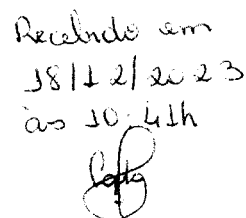 Recebido em
18/12/2023
às 10:41h